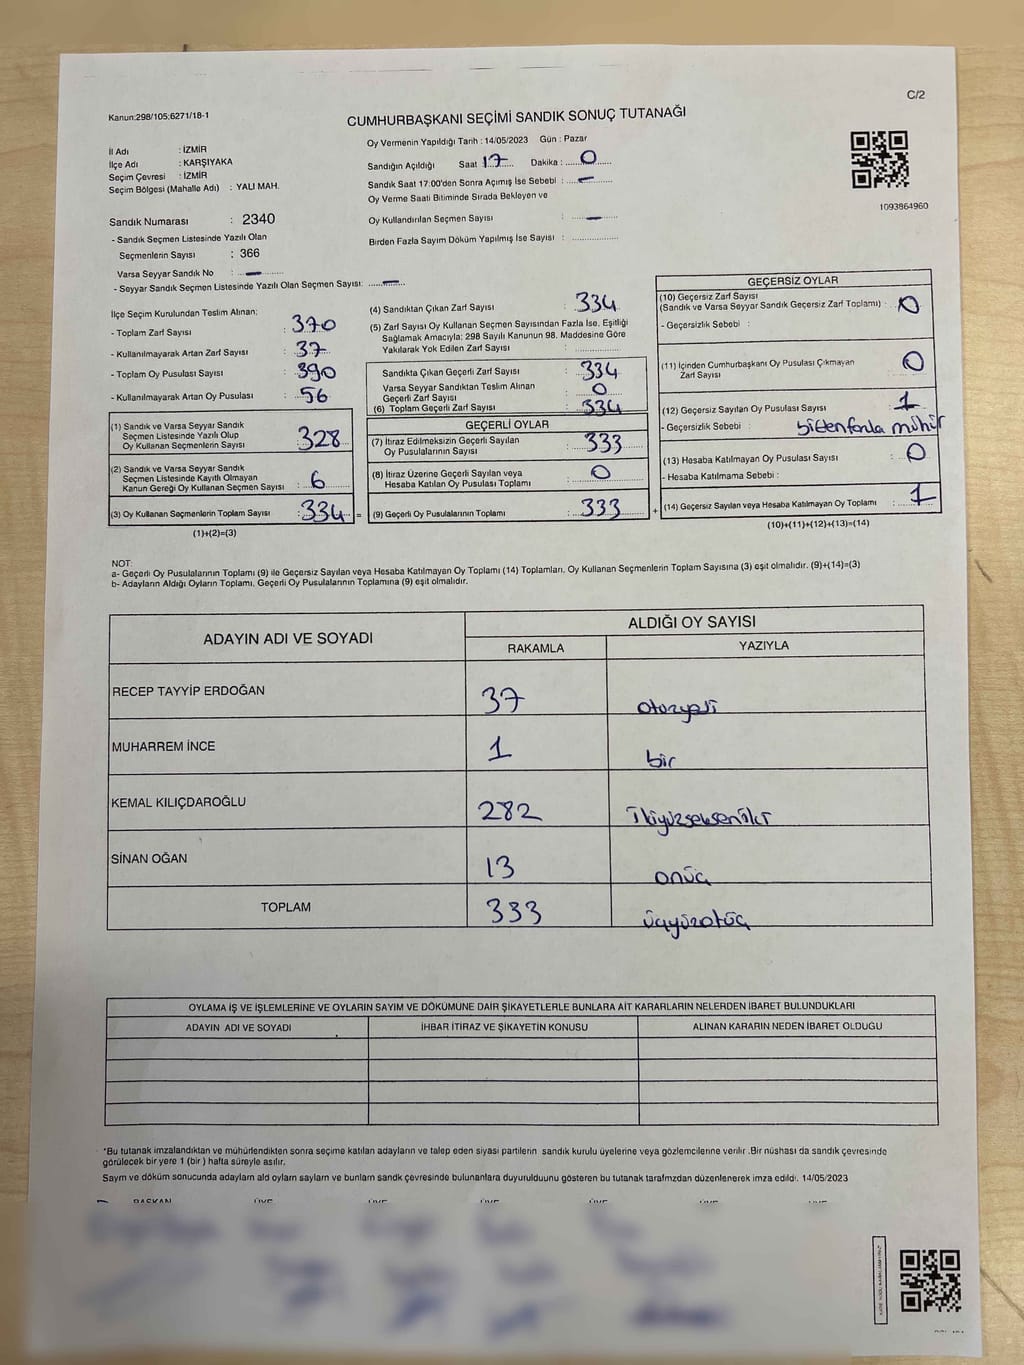 C/2
Kanun:298/105;6271/18-1
CUMHURBAŞKANI SEÇİMİ SANDIK SONUÇ TUTANAĞI
İl Adı : İZMİR
İlçe Adı : KARŞIYAKA
Seçim Çevresi : İZMİR
Seçim Bölgesi (Mahalle Adı) : YALI MAH.
Oy Vermenin Yapıldığı Tarih : 14/05/2023 Gün : Pazar
Sandığın Açıldığı Saat 17 Dakika : 0
Sandık Saat 17:00'den Sonra Açımış İse Sebebi : —
Oy Verme Saati Bitiminde Sırada Bekleyen ve
Oy Kullandırılan Seçmen Sayısı : —
Birden Fazla Sayım Döküm Yapılmış İse Sayısı :
1093864960
Sandık Numarası : 2340
- Sandık Seçmen Listesinde Yazılı Olan
Seçmenlerin Sayısı : 366
Varsa Seyyar Sandık No : —
- Seyyar Sandık Seçmen Listesinde Yazılı Olan Seçmen Sayısı: —
İlçe Seçim Kurulundan Teslim Alınan:
- Toplam Zarf Sayısı : 370
- Kullanılmayarak Artan Zarf Sayısı : 37
- Toplam Oy Pusulası Sayısı : 390
- Kullanılmayarak Artan Oy Pusulası : 56
(1) Sandık ve Varsa Seyyar Sandık
Seçmen Listesinde Yazılı Olup
Oy Kullanan Seçmenlerin Sayısı : 328
(2) Sandık ve Varsa Seyyar Sandık
Seçmen Listesinde Kayıtlı Olmayan
Kanun Gereği Oy Kullanan Seçmen Sayısı : 6
(3) Oy Kullanan Seçmenlerin Toplam Sayısı : 334 =
(1)+(2)=(3)
(4) Sandıktan Çıkan Zarf Sayısı : 334
(5) Zarf Sayısı Oy Kullanan Seçmen Sayısından Fazla İse, Eşitliği
Sağlamak Amacıyla; 298 Sayılı Kanunun 98. Maddesine Göre
Yakılarak Yok Edilen Zarf Sayısı :
Sandıkta Çıkan Geçerli Zarf Sayısı : 334
Varsa Seyyar Sandıktan Teslim Alınan
Geçerli Zarf Sayısı : 0
(6) Toplam Geçerli Zarf Sayısı : 334
GEÇERLİ OYLAR
(7) İtiraz Edilmeksizin Geçerli Sayılan
Oy Pusulalarının Sayısı : 333
(8) İtiraz Üzerine Geçerli Sayılan veya
Hesaba Katılan Oy Pusulası Toplamı : 0
(9) Geçerli Oy Pusulalarının Toplamı : 333 +
GEÇERSİZ OYLAR
(10) Geçersiz Zarf Sayısı
(Sandık ve Varsa Seyyar Sandık Geçersiz Zarf Toplamı) : 0
- Geçersizlik Sebebi :
(11) İçinden Cumhurbaşkanı Oy Pusulası Çıkmayan
Zarf Sayısı : 0
(12) Geçersiz Sayılan Oy Pusulası Sayısı : 1
- Geçersizlik Sebebi : birdenfazla mühür
(13) Hesaba Katılmayan Oy Pusulası Sayısı : 0
- Hesaba Katılmama Sebebi :
(14) Geçersiz Sayılan veya Hesaba Katılmayan Oy Toplamı : 1
(10)+(11)+(12)+(13)=(14)
NOT:
a- Geçerli Oy Pusulalarının Toplamı (9) ile Geçersiz Sayılan veya Hesaba Katılmayan Oy Toplamı (14) Toplamları, Oy Kullanan Seçmenlerin Toplam Sayısına (3) eşit olmalıdır. (9)+(14)=(3)
b- Adayların Aldığı Oyların Toplamı, Geçerli Oy Pusulalarının Toplamına (9) eşit olmalıdır.
ADAYIN ADI VE SOYADI ALDIĞI OY SAYISI
RAKAMLA YAZIYLA
RECEP TAYYİP ERDOĞAN 37 otuzyedi
MUHARREM İNCE 1 bir
KEMAL KILIÇDAROĞLU 282 ikiyüzsekseniki
SİNAN OĞAN 13 onüç
TOPLAM 333 üçyüzotüç
OYLAMA İŞ VE İŞLEMLERİNE VE OYLARIN SAYIM VE DÖKÜMÜNE DAİR ŞİKAYETLERLE BUNLARA AİT KARARLARIN NELERDEN İBARET BULUNDUKLARI
ADAYIN ADI VE SOYADI İHBAR İTİRAZ VE ŞİKAYETİN KONUSU ALINAN KARARIN NEDEN İBARET OLDUĞU
*Bu tutanak imzalandıktan ve mühürlendikten sonra seçime katılan adayların ve talep eden siyasi partilerin sandık kurulu üyelerine veya gözlemcilerine verilir .Bir nüshası da sandık çevresinde
görülecek bir yere 1 (bir ) hafta süreyle asılır.
Sayım ve döküm sonucunda adayların ald oyların sayların ve bunların sandk çevresinde bulunanlara duyurulduunu gösteren bu tutanak tarafmzdan düzenlenerek imza edildi. 14/05/2023
BAŞKAN ÜYE ÜYE ÜYE ÜYE ÜYE ÜYE